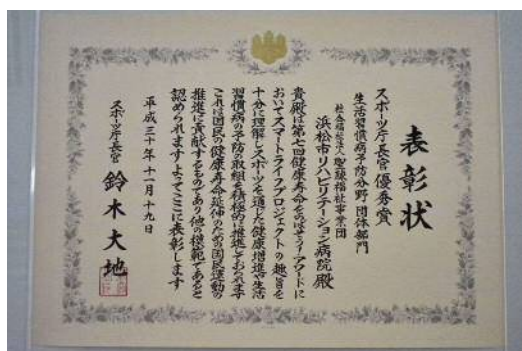 表彰状
スポーツ庁長官優秀賞
生活習慣病予防分野団体部門
社会福祉法人聖隷福祉事業団
浜松市リハビリテーション病院殿
貴殿は第七回健康寿命をのばそう!アワードに
おいてスマートライフプロジェクトの趣旨を
十分に理解しスポーツを通じた健康増進や生活
習慣病の予防の取組を積極的に推進しておられます
これは国民の健康寿命延伸のための国民運動の
推進に貢献するものであり他の模範であると
認められますよってここに表彰します
平成三十年十一月十九日
スポーツ庁長官 鈴木大地